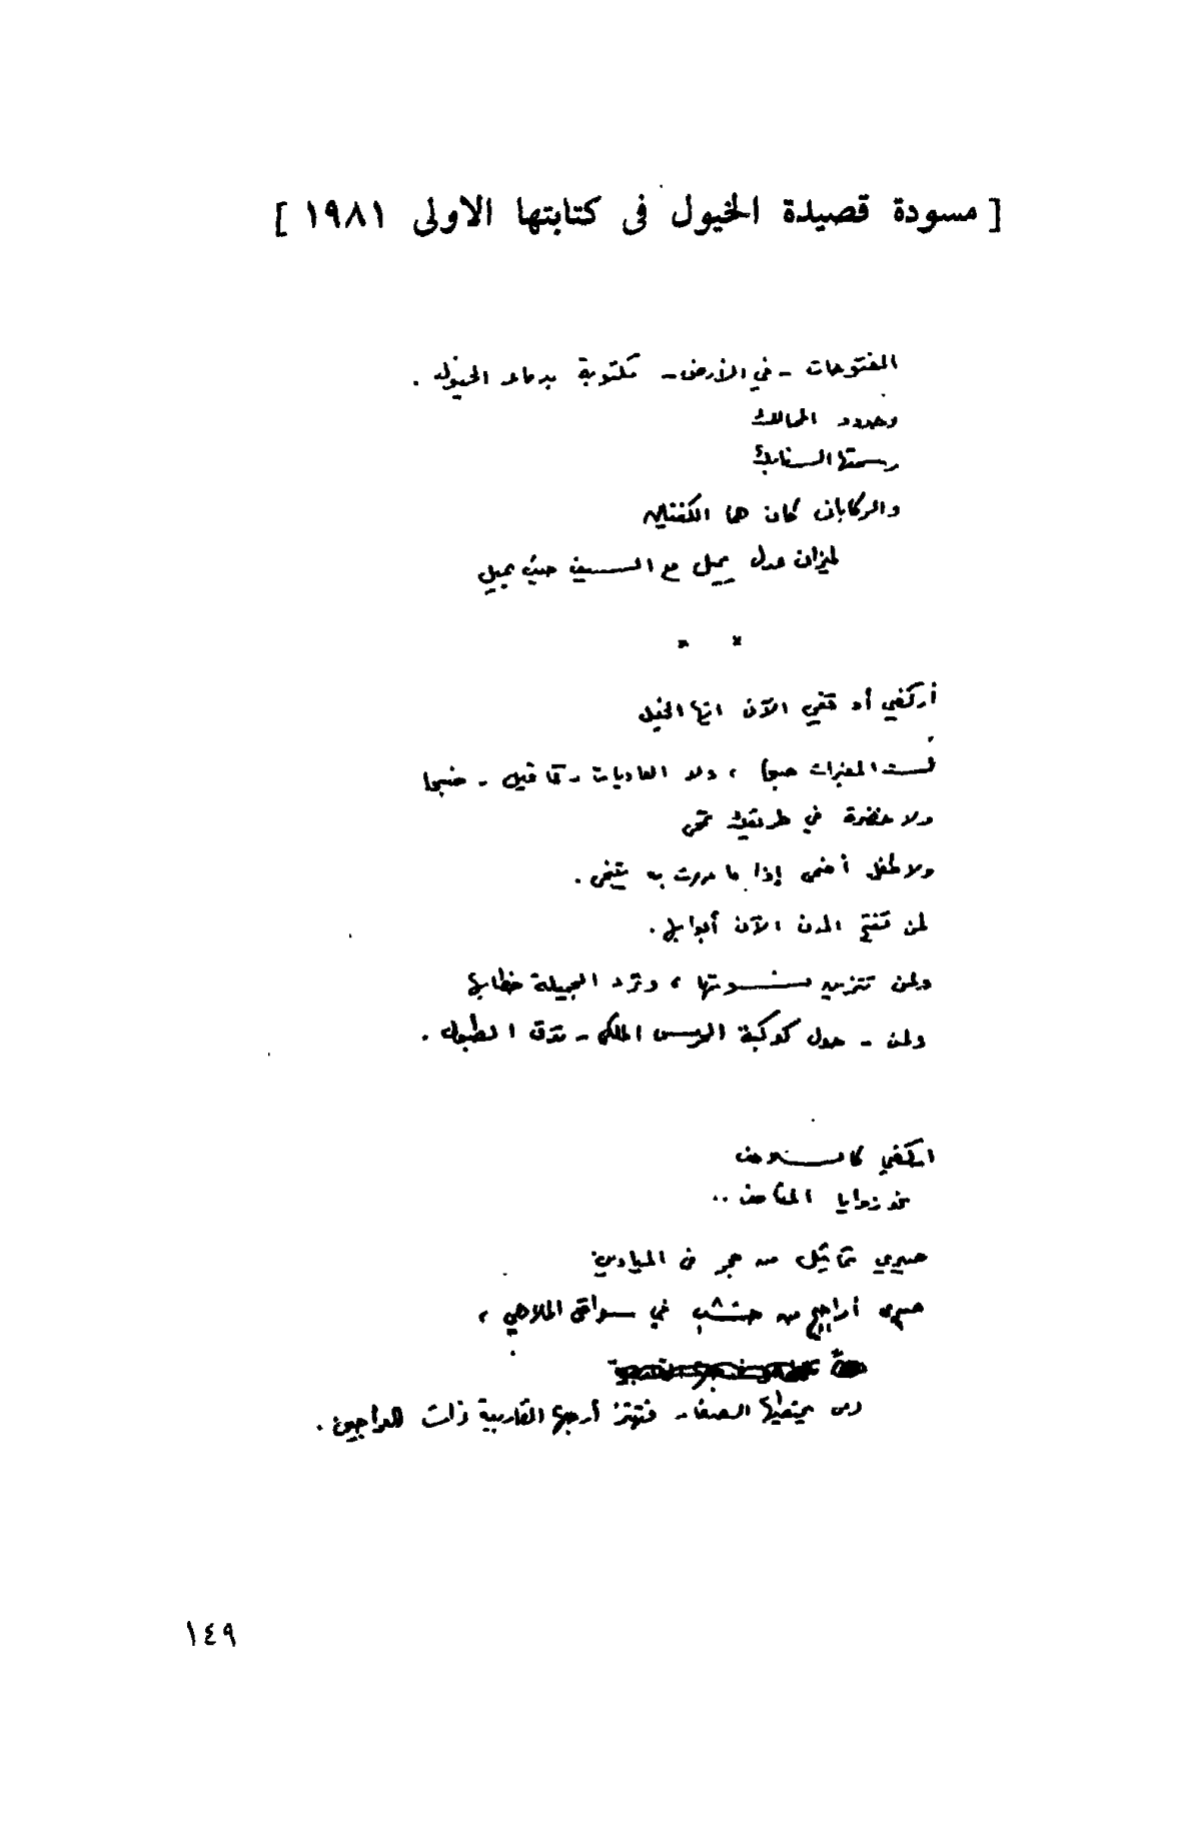 [ مسودة قصيدة الخيول فى كتابتها الاولى ١٩٨١ ]
الفتوحات - في الأرض - مكتوبة بدماء الخيول .
وحدود الممالك
رسمتها السنابك
والركابان كانا هما الكفتين
لميزان عدل يميل مع السيف حيث يميل
× ×
أركضي أو قفي الآن ايها الخيل
لست المغيرات صبحا ، ولا العاديات - كما قيل - ضبحا
ولا خضرة في طريقك تمحى
ولا طفل أضحى إذا ما مررت به يتنحى .
لن تفتح المدن الآن أبوابها .
ولن تتزين نسوتها ، وترد الجميلة خطابها
ولن - حول كوكبة الحرس الملكي - تدق الطبول .
اركضي كالسلاحف
نحو زوايا المتاحف ..
صيري تماثيل من حجر في الميادين
صيري أراجيح من خشب في سواقي الملاهي ،
يمتطيها الصغار فتهتز أرجلها
١٤٩